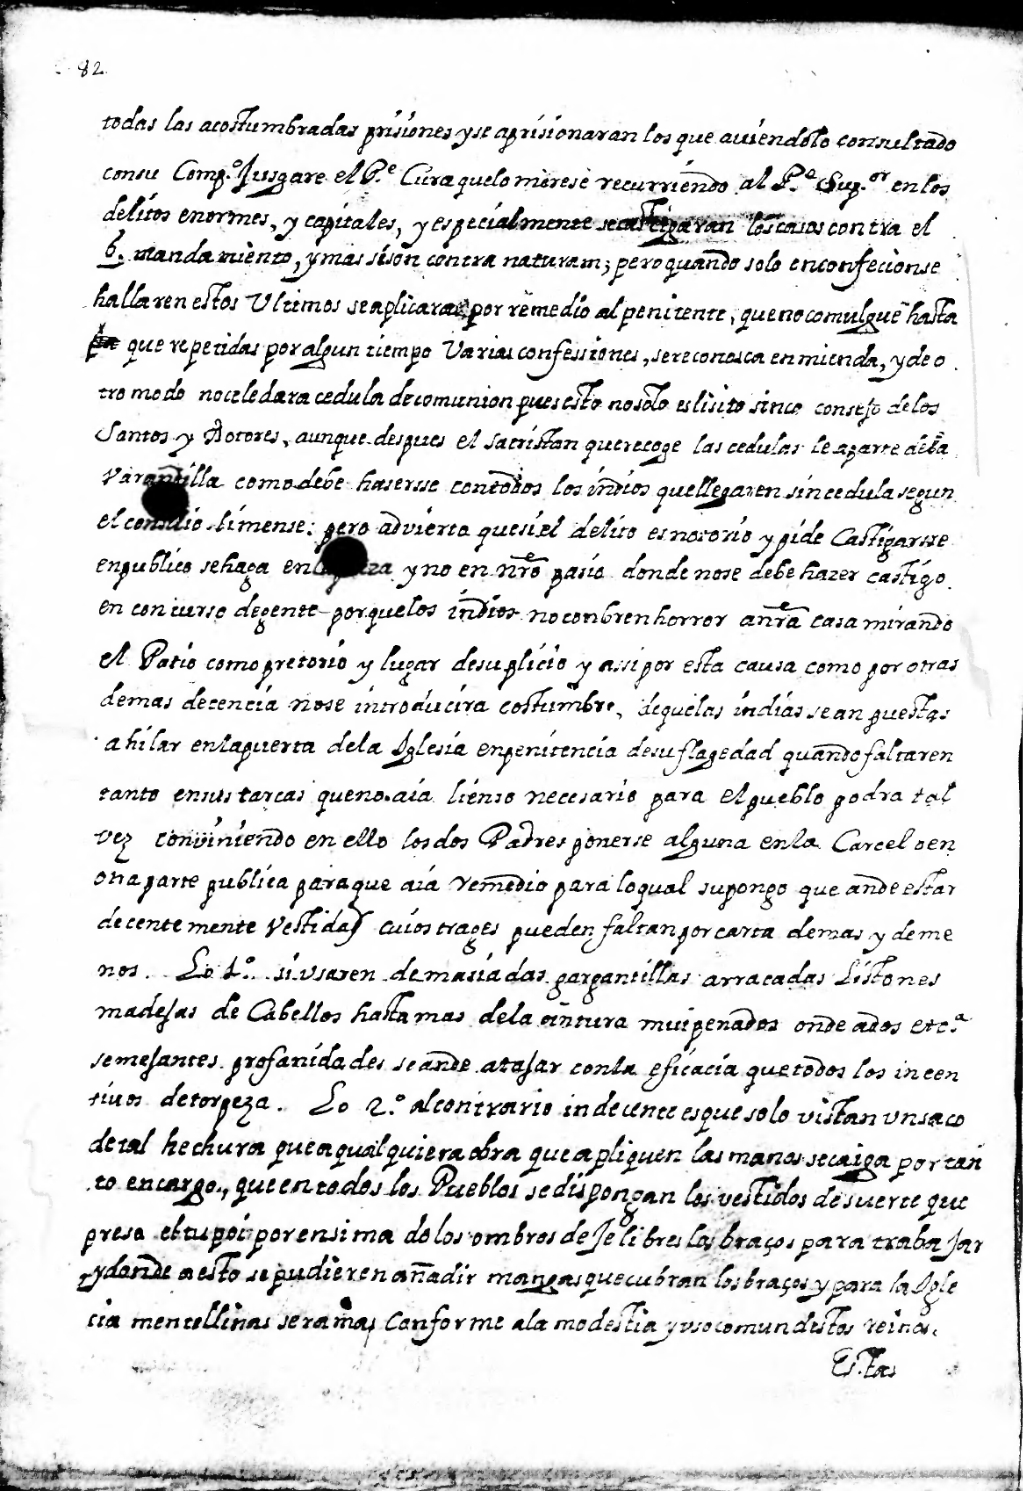 82
todas las acostumbradas prisiones y se aprisionaran los que auiendolo consultado
consu Comp.º Jusgare el P.e Cura quelo merese recurriendo al P.e Sup.or en los
delitos enormes, y capitales, y especialmente se castigaran los casos contra el
6. mandamiento, y mas si son contra naturam; pero quando solo enconfecionse
hallaren estos Ultimos se aplicara por remedio al penitente, que no comulgue hasta
que repetidas por algun tiempo Varias confessiones, se reconosca enmienda, y de o
tro modo nocele dara cedula de comunion pues esto no solo es lisito sinco consejo delos
Santos y Dotores, aunque despues el sacristan que recoge las cedulas le aparte dela
Varandilla como debe hasersse contodos los indios que llegaren sin cedula segun
el consilio limense: pero advierto que si el delito es notorio y pide Castigarsse
enpublico se haga en la y no en nro pasio donde no se debe hazer castigo
en concurso degente porquelos indios no conbren horror anra casa mirando
el Patio como pretorio y lugar desuplicio y assi por esta causa como por otras
demas decencia nose introducira costumbre, dequelas indias sean puestas
a hilar en la puerta dela Iglesia enpenitencia desu flagedad quando faltaren
tanto en sus tareas que no aia lienso necesario para el pueblo podra tal
vez conviniendo en ello los dos Padres ponerse alguna en la Carcel o en
otra parte publica para que aia remedio para lo qual supongo que ande estar
decentemente Vestidas cuios trages pueden faltan por carta demas y de me
nos. Lo 1.º si usaren demasiadas gargantillas arracadas Listones
madejas de Cabellos hasta mas dela cintura mui penados ondeados etc.a
semejantes profanidades se ande atajar conla eficacia que todos los incen
tiuos de torpeza. Lo 2.º al contrario indecente es que solo vistan un saco
de tal hechura que a qualquiera obra que apliquen las manos se caiga por tan
to encargo, que en todos los Pueblos se dispongan los vestidos de suerte que
preso el tupoi por ensima de los ombros deje libres los braços para trabajar
y donde a esto se pudieren añadir mangas que cubran los braços y para la Igle
cia mentellinas sera mas Conforme ala modestia y uso comun destos reinos.
Estas